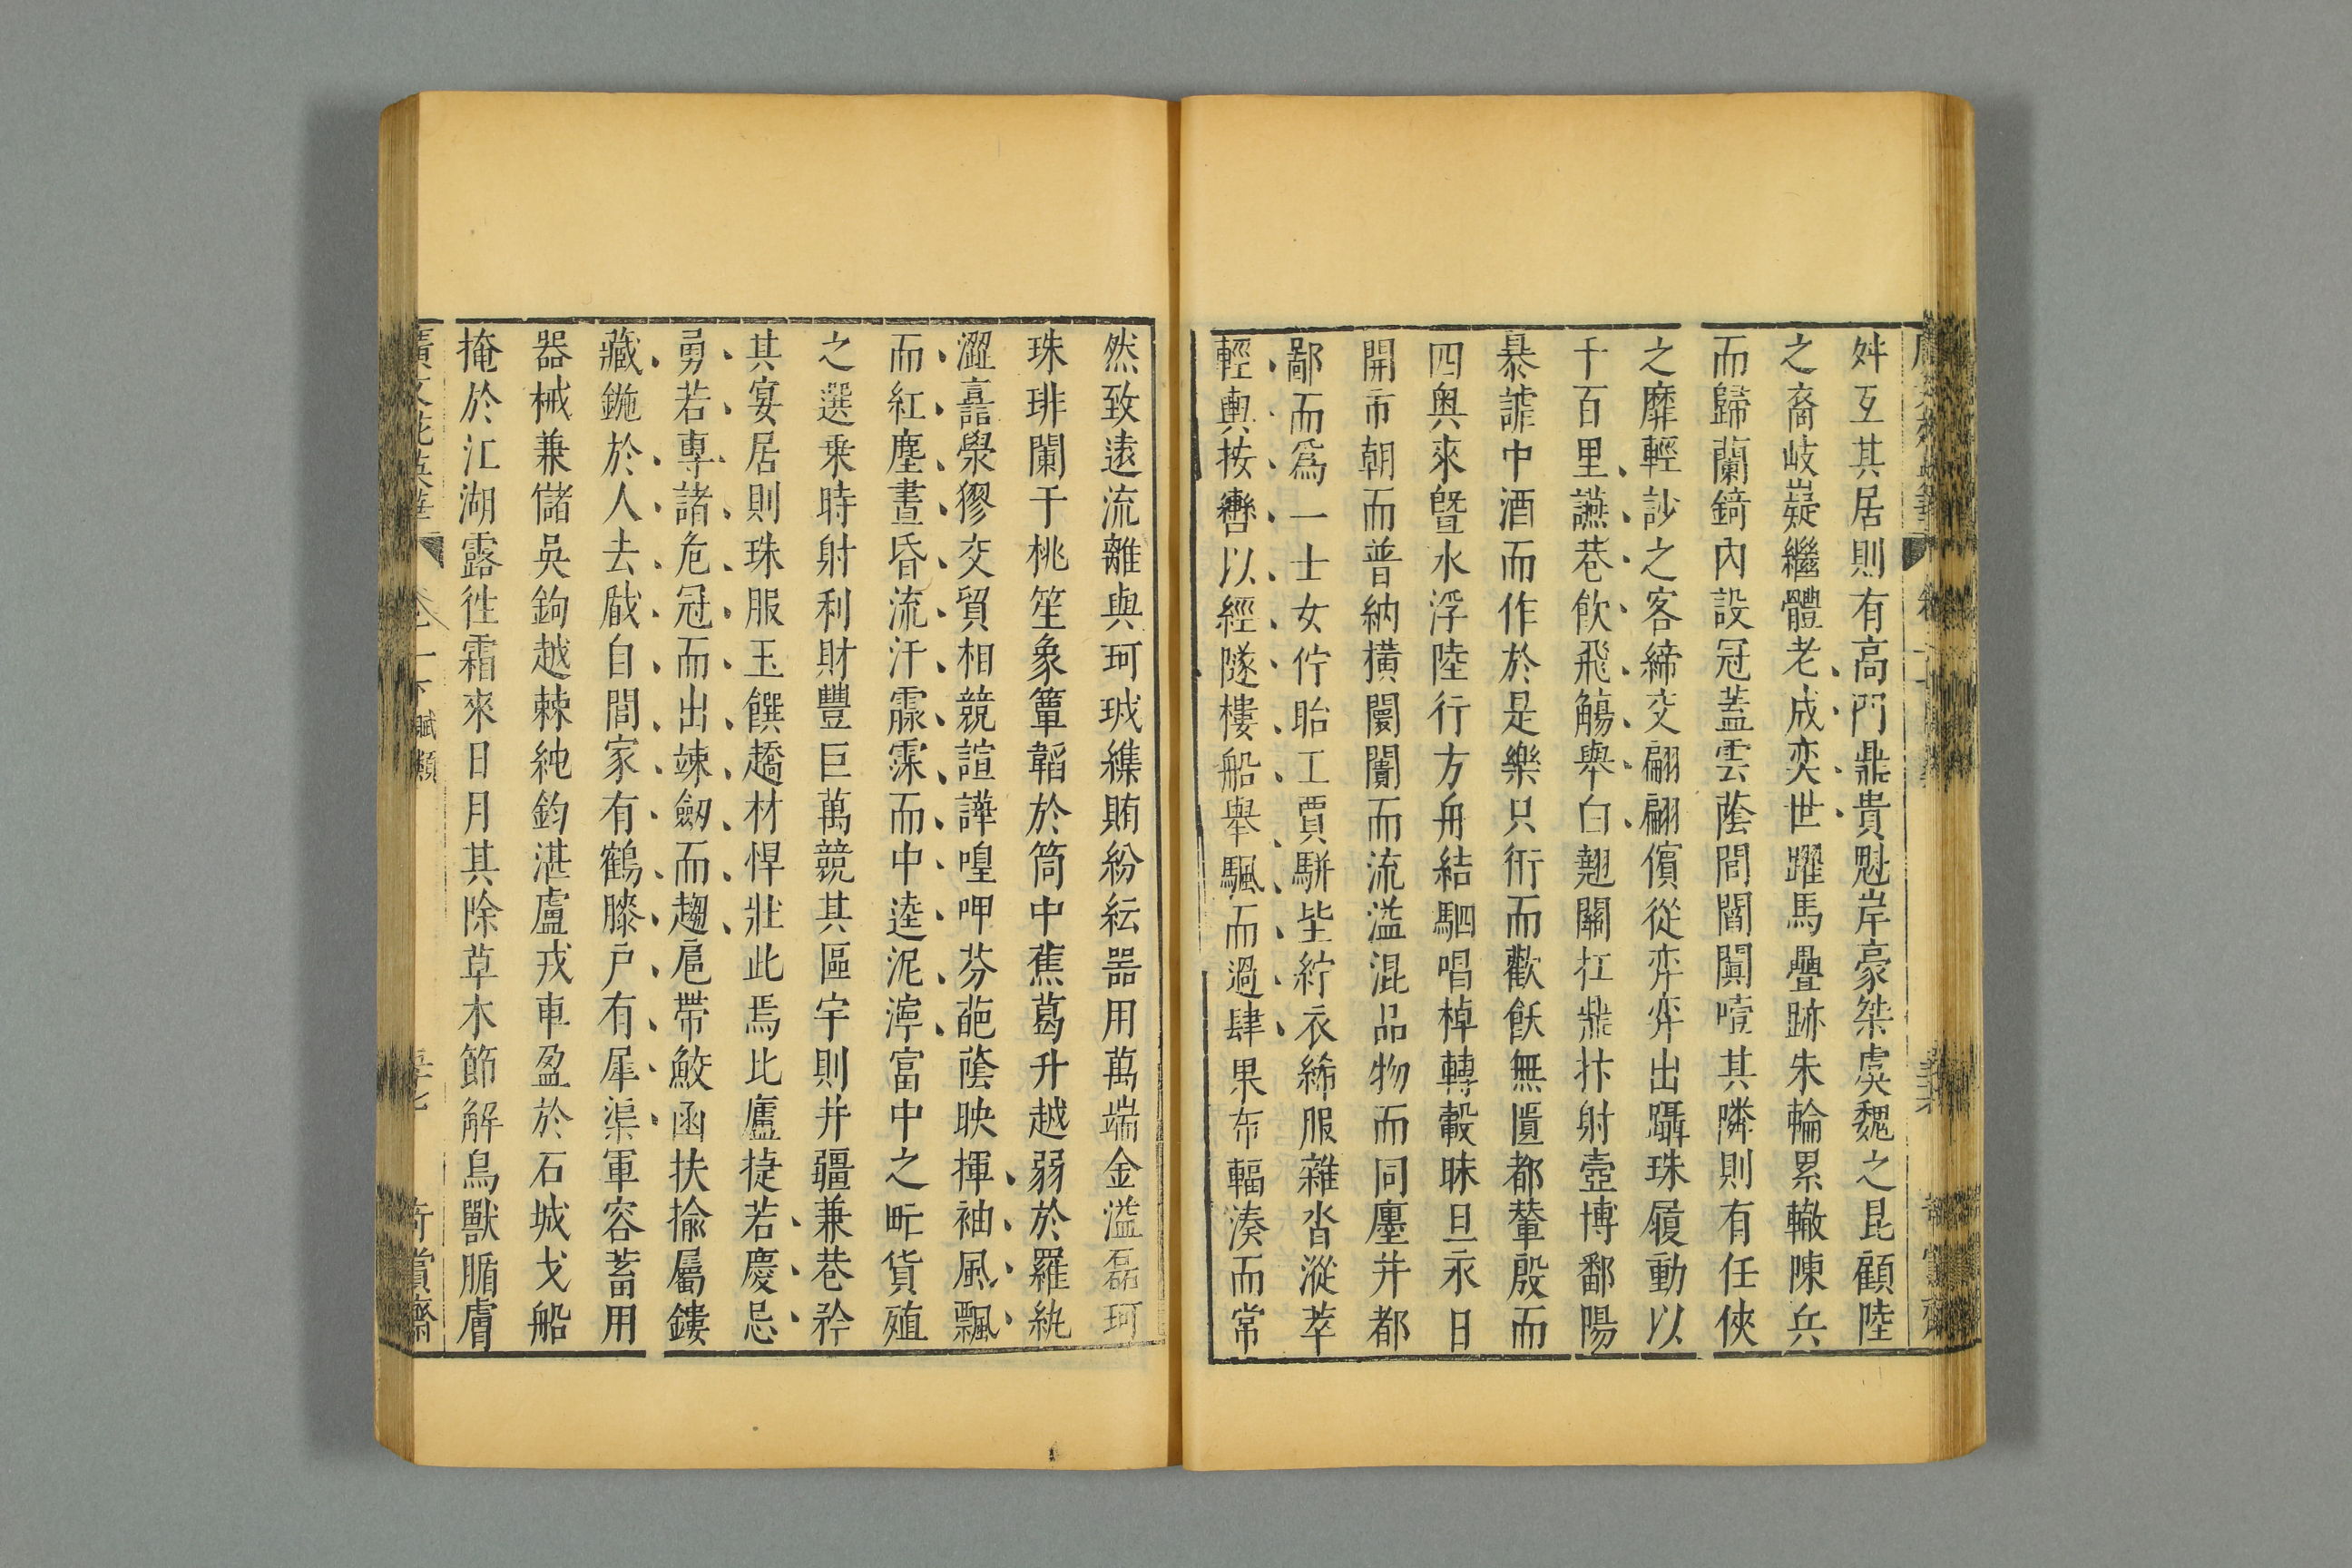 舛互其居則有高門鼎貴魁岸豪桀虞魏之昆顧陸
之裔岐嶷繼體老成奕世躍馬疊跡朱輪累轍陳兵
而歸蘭錡內設冠蓋雲蔭閭閻闐噎其隣則有任俠
之靡輕訬之客締交翩翩儐從弈弈出躡珠履動以
千百里讌巷飲飛觴舉白翹關扛鼎抃射壺博鄱陽
暴謔中酒而作於是樂只衎而歡飫無匱都輦殷而
四奥來曁水浮陸行方舟結駟唱棹轉轂昧旦永日
開市朝而普納橫闤闠而流溢混品物而同廛并都
鄙而爲一士女佇眙工賈駢坒紵衣絺服雜沓漎萃
輕輿按轡以經隧樓船舉颿而過肆果布輻湊而常
然致遠流離與珂珬緤賄紛紜噐用萬端金溢磊珂
珠琲闌干桃笙象簟韜於筒中蕉葛升越弱於羅紈
澀譶㶅㺒交貿相競諠譁喤呷芬葩蔭映揮袖風飄
而紅塵晝昏流汗霡霂而中逵泥濘富中之甿貨殖
之選乗時射利財豐巨萬競其區宇則并疆兼巷矜
其宴居則珠服玉饌趫材悍壯此焉比廬捷若慶忌
勇若專諸危冠而出竦劔而趨扈帶鮫函扶揄屬鏤
藏鍦於人去戙自閭家有鶴膝户有犀渠軍容蓄用
器械兼儲吳鉤越棘純鈞湛盧戎車盈於石城戈船
掩於江湖露徃霜來日月其除草木節解鳥獸腯膚
廣文苑英華 卷一下 賦類 奇賞齋